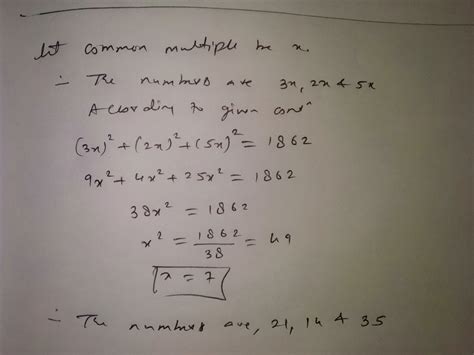 let common multiple be x.
∴ The numbers are 3x, 2x & 5x
According to given condⁿ
(3x)² + (2x)² + (5x)² = 1862
9x² + 4x² + 25x² = 1862
38x² = 1862
x² = 1862/38 = 49
x = 7
∴ The numbers are, 21, 14 & 35